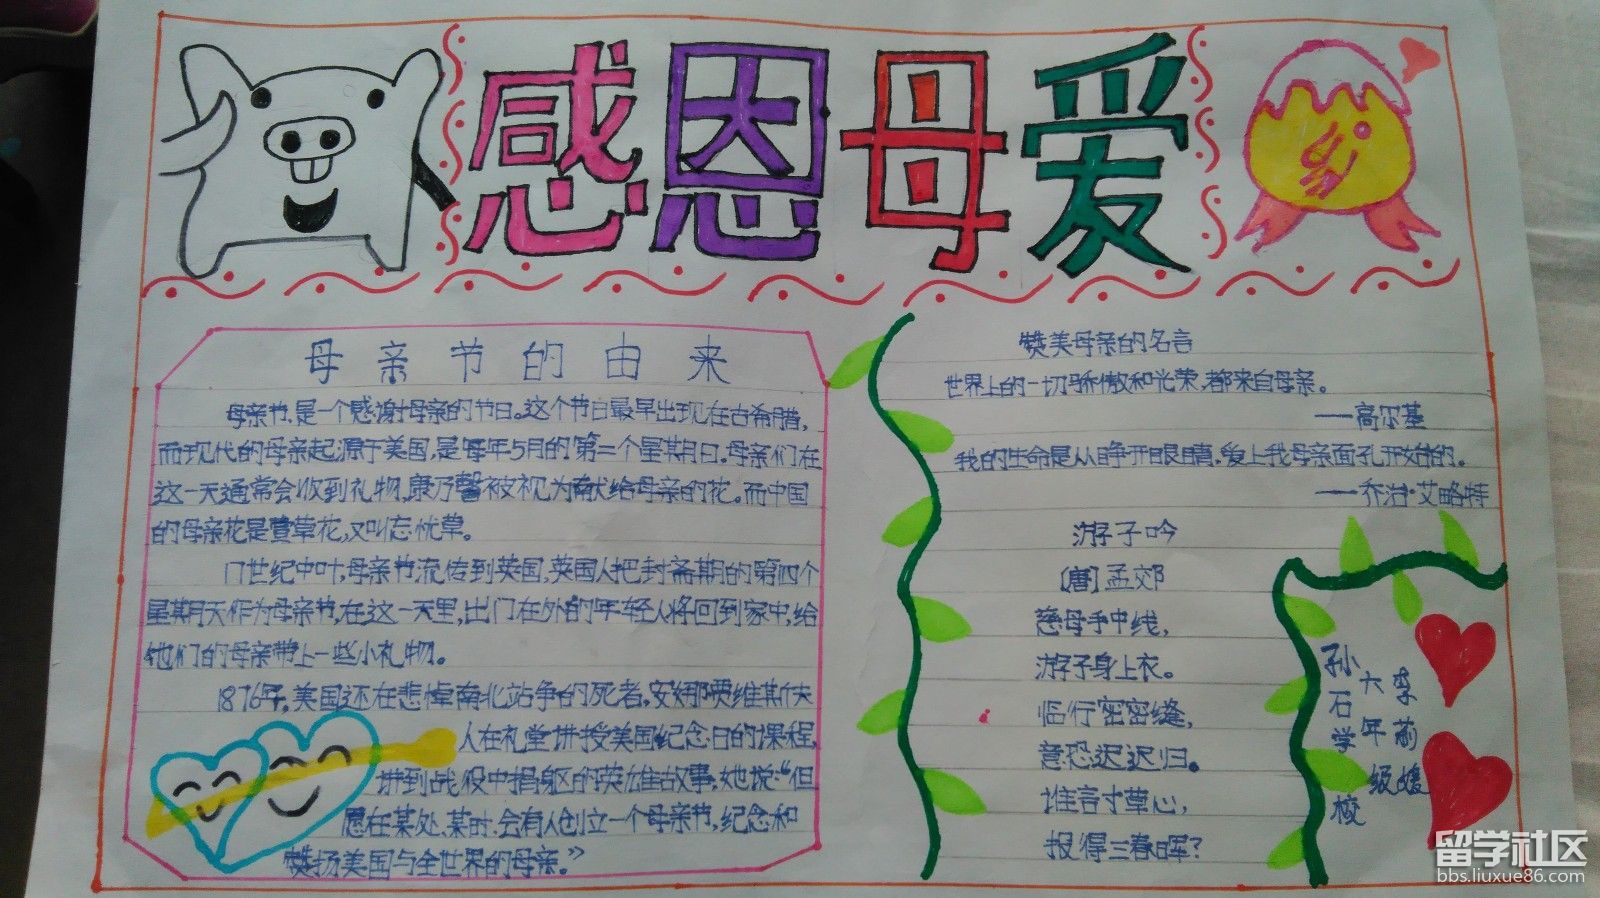 感恩母爱
母亲节的由来
母亲节,是一个感谢母亲的节日。这个节日最早出现在古希腊,
而现代的母亲起源于美国,是每年5月的第二个星期日。母亲们在
这一天通常会收到礼物,康乃馨被视为献给母亲的花。而中国
的母亲花是萱草花,又叫忘忧草。
17世纪中叶,母亲节流传到英国,英国人把封斋期的第四个
星期天作为母亲节,在这一天里,出门在外的年轻人将回到家中,给
他们的母亲带上一些小礼物。
1876年,美国还在悲悼南北站争的死者,安娜贾维斯夫
人在礼堂讲授美国纪念日的课程,
讲到战役中捐躯的英雄故事,她说:“但
愿在某处、某时,会有人创立一个母亲节,纪念和
赞扬美国与全世界的母亲。”
赞美母亲的名言
世界上的一切骄傲和光荣,都来自母亲。
——高尔基
我的生命是从睁开眼睛,爱上我母亲面孔开始的。
——乔治·艾略特
游子吟
[唐]孟郊
慈母手中线,
游子身上衣。
临行密密缝,
意恐迟迟归。
谁言寸草心,
报得三春晖?
孙石学校
六年级
李前媛
留学社区
bbs.liuxue86.com